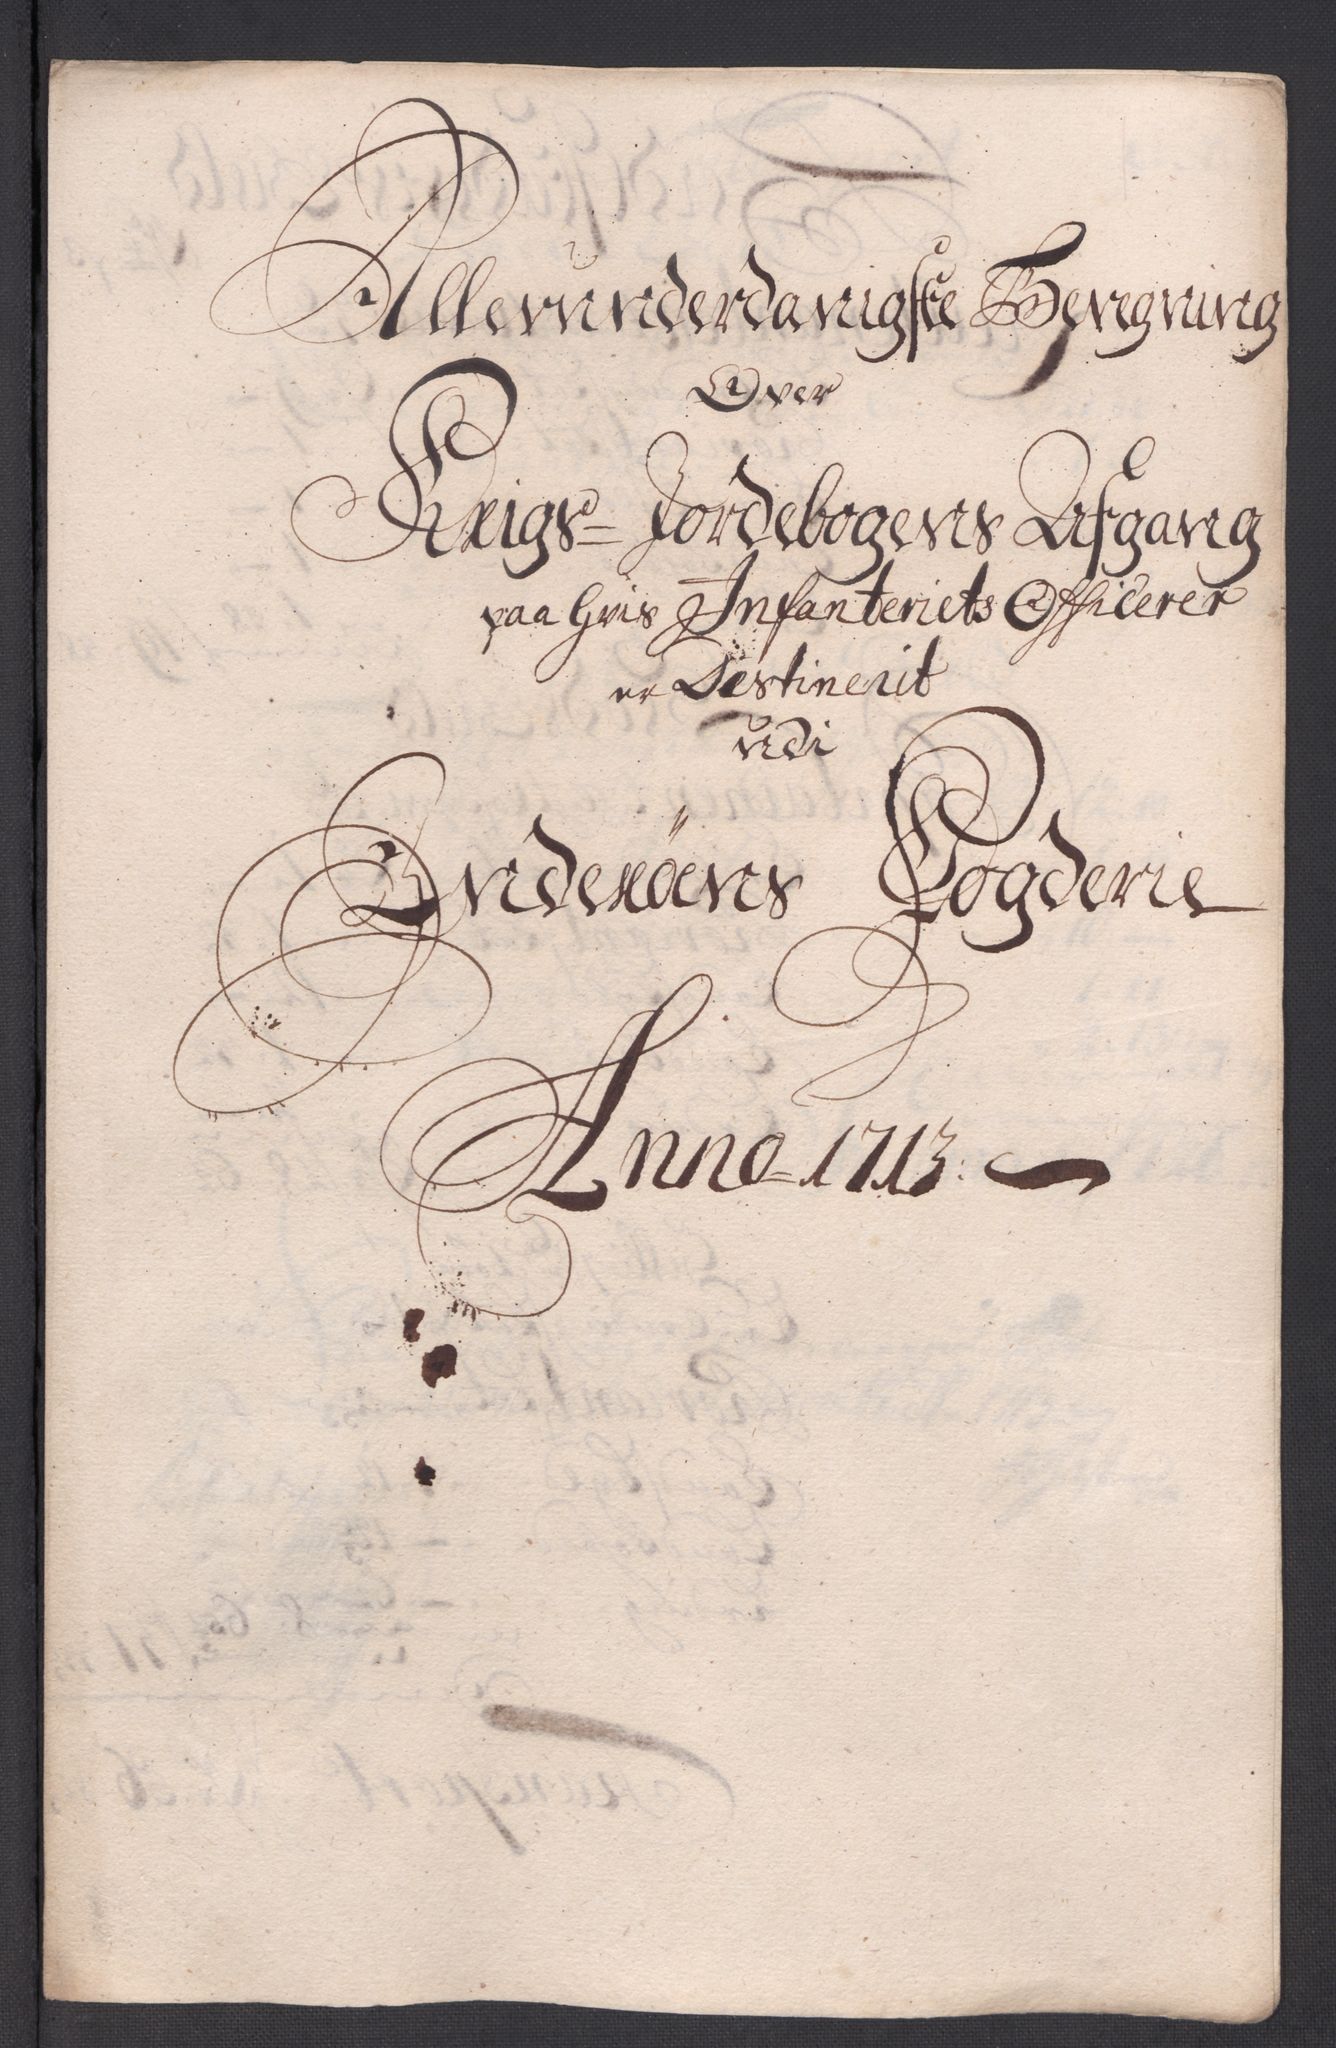 Allerunderdanigste Beregning
Over
Krigs= Jordebogens Afgang
paa hvis Infanteriets Officerer
er Destinerit
udi
Inderöens Fogderie
Anno= 1713: